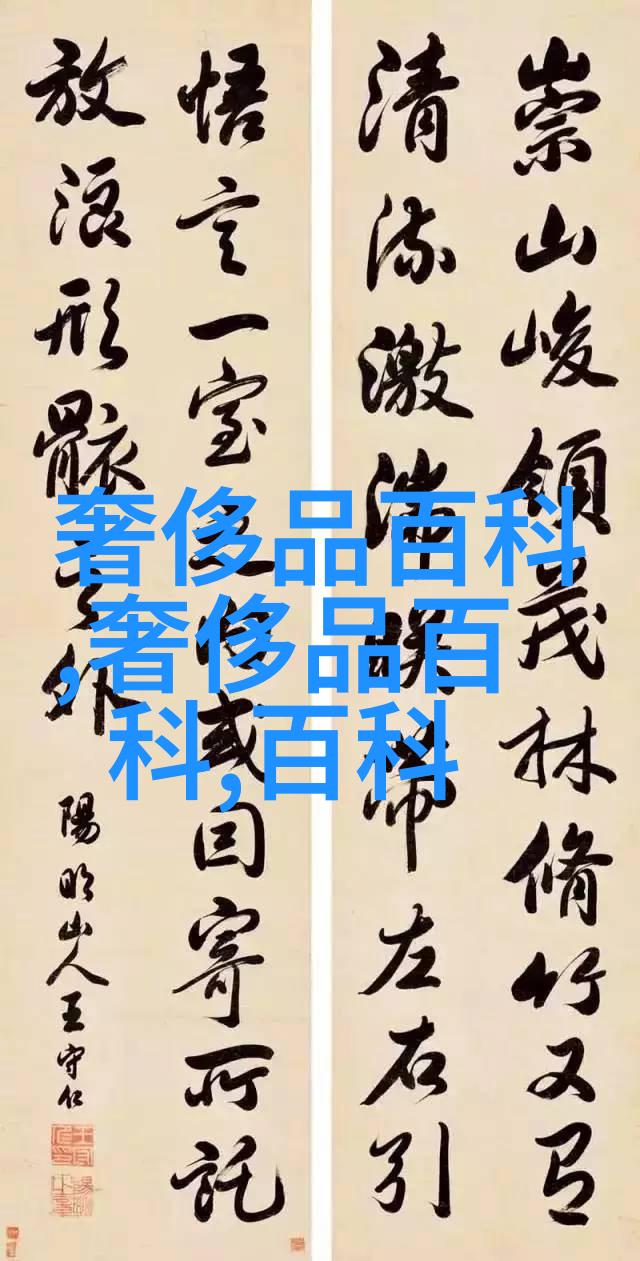 崇山峻領茂林脩竹又有
清流激湍暎帶左右引
悟言一室之内或因寄所託
放浪形骸之外
陽明山人王守仁
奢侈品百科
,奢侈品百
科,百科